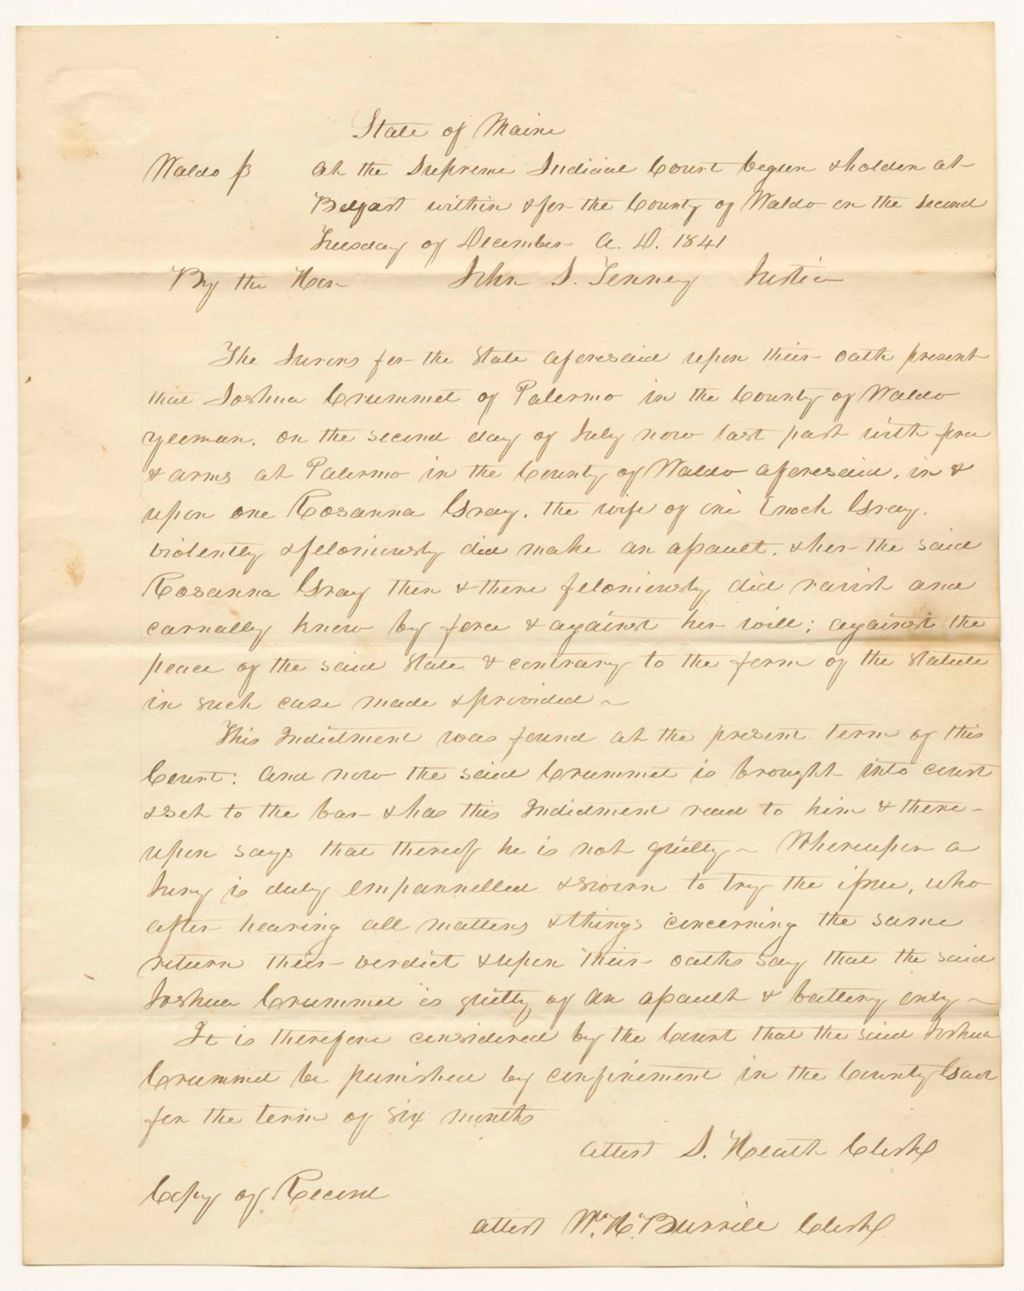 State of Maine
Waldo ss At the Supreme Judicial Court begun & holden at
Belfast within & for the County of Waldo on the second
Tuesday of December A. D. 1841
By the Hon John S. Tenney Justice
The Jurors for the State aforesaid upon their oath present
that Joshua Crummet of Palermo in the County of Waldo
yeoman, on the second day of July now last past with force
& arms at Palermo in the County of Waldo aforesaid, in &
upon one Rosanna Gray, the wife of one Enoch Gray,
violently & feloniously did make an assault, & her the said
Rosanna Gray then & there feloniously did ravish and
carnally know by force & against her will; against the
peace of the said State & contrary to the form of the Statute
in such case made & provided ~
This Indictment was found at the present term of this
Court: And now the said Crummet is brought into court
& set to the bar & has this Indictment read to him & there-
upon says that thereof he is not guilty ~ Whereupon a
Jury is duly empannelled & sworn to try the issue, who
after hearing all matters & things concerning the same
return their verdict & upon their oaths say that the said
Joshua Crummet is guilty of an assault & battery only ~
It is therefore considered by the Court that the said Joshua
Crummet be punished by confinement in the County Gaol
for the term of six months
Attest S. Heath Clerk
Copy of Record
Attest Wm. H. Burrill Clerk